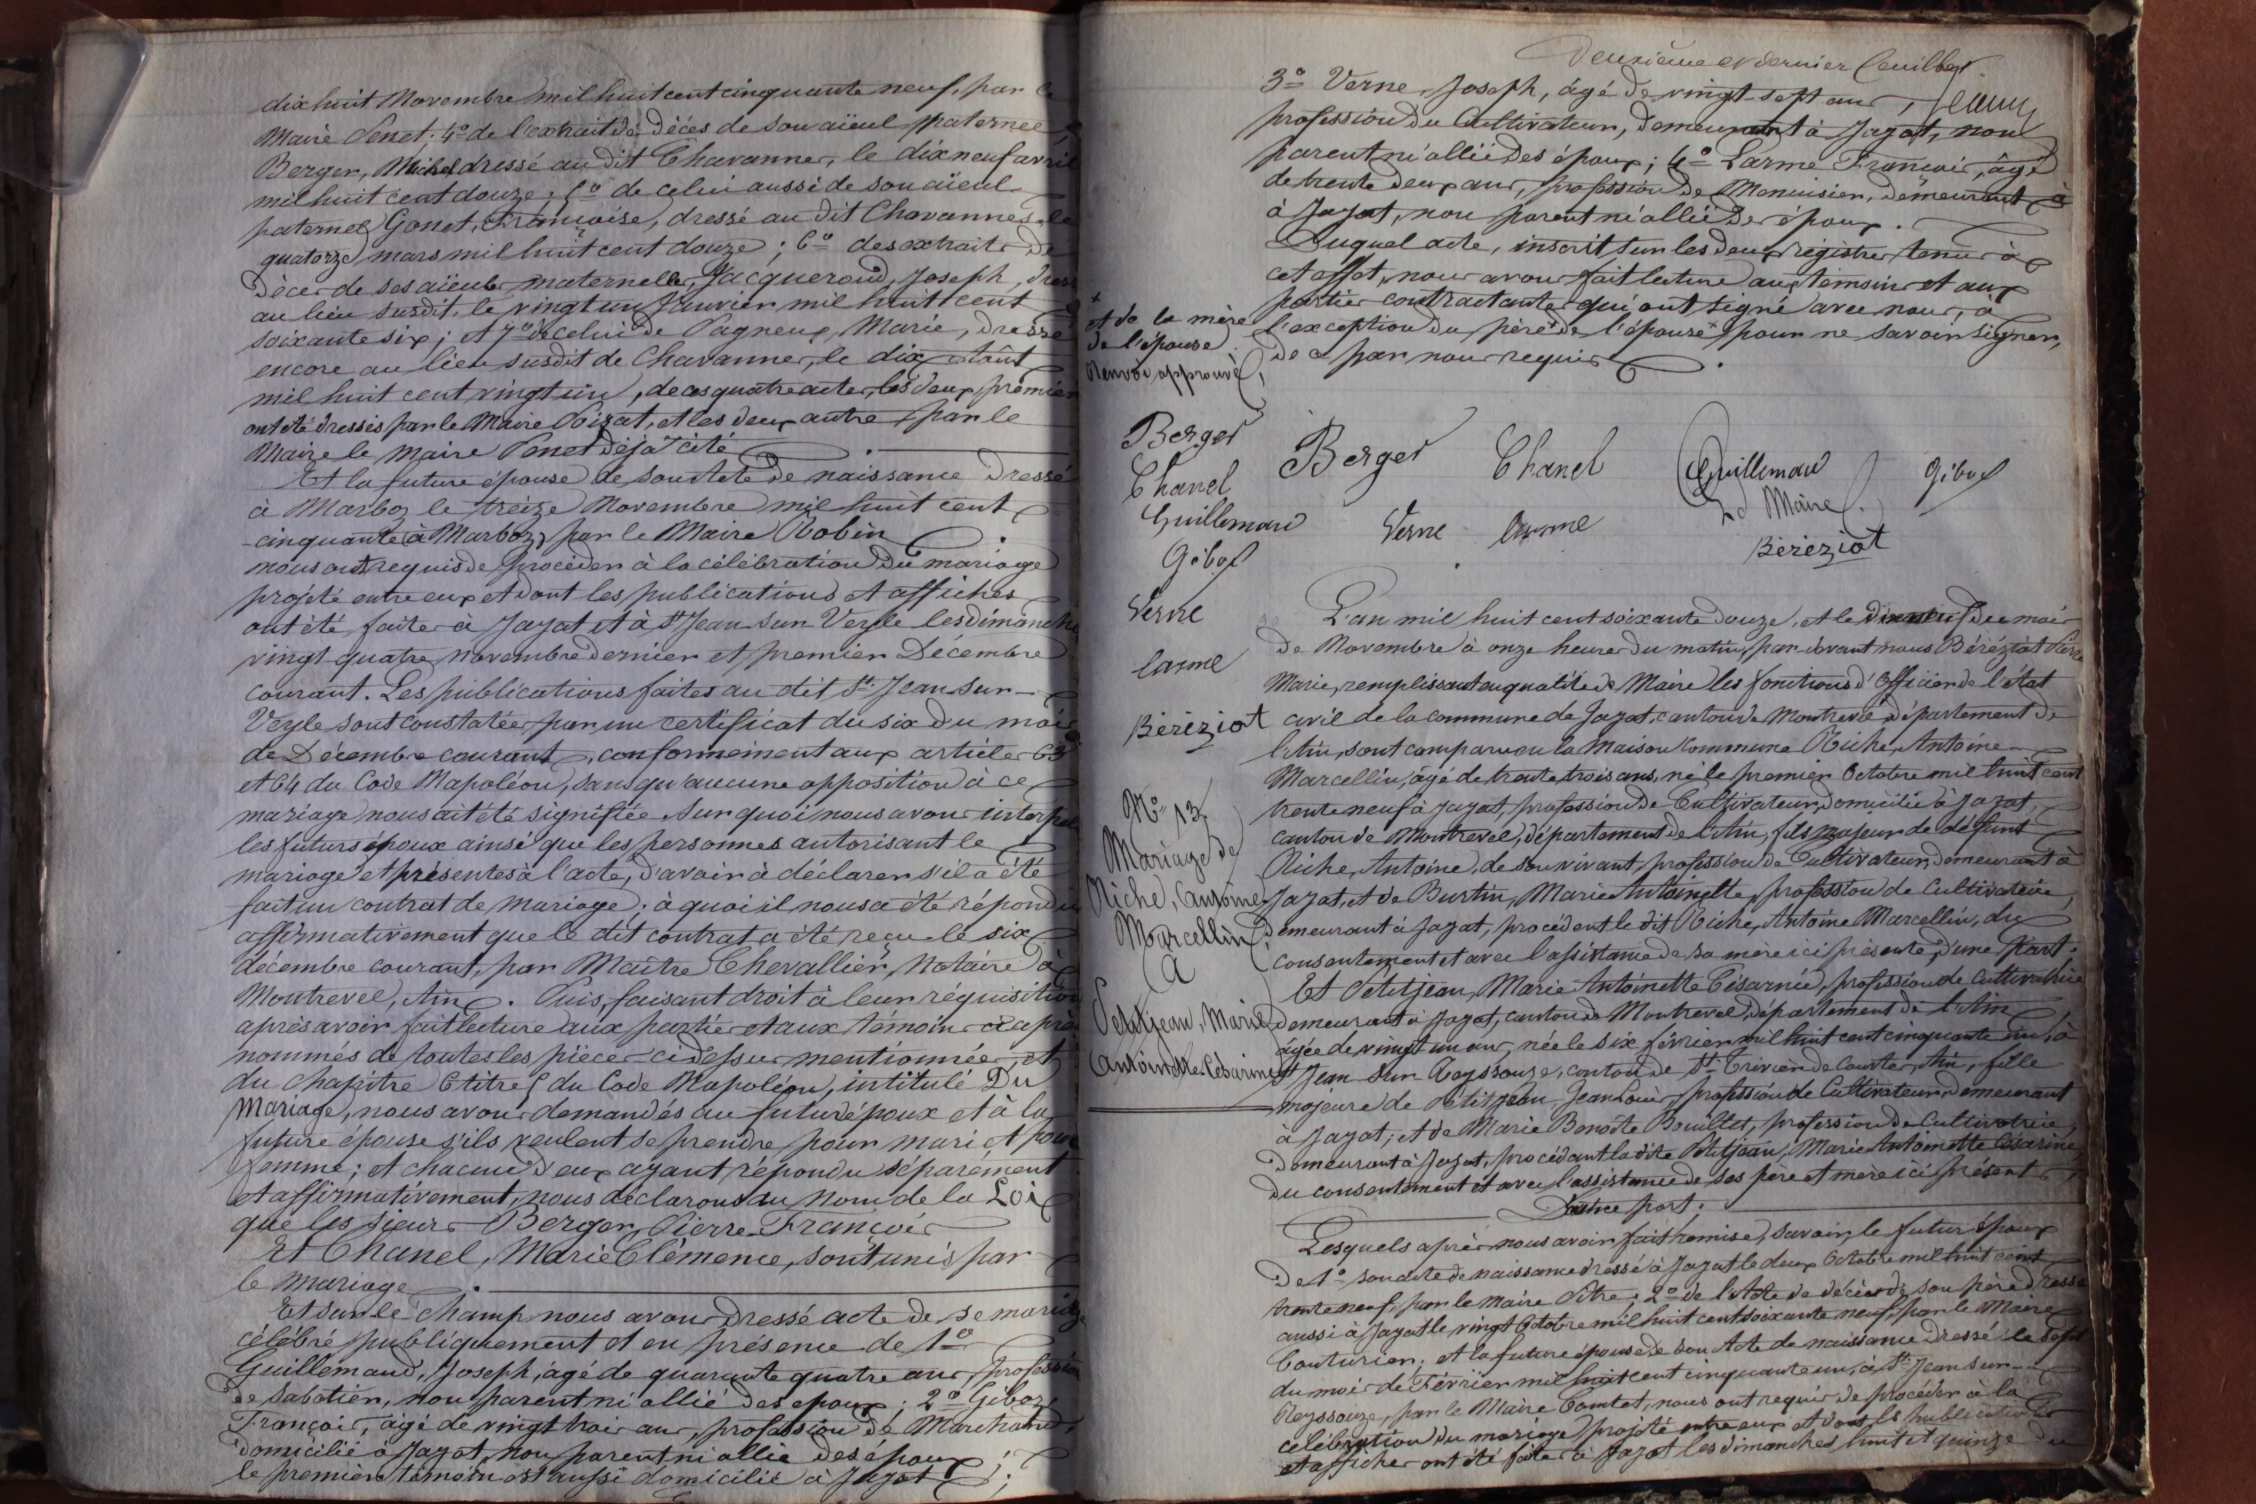 dix huit Novembre mil huit cent cinquante neuf, par le
Maire Penet; 4º de l'extrait de décès de son aïeul paternel,
Berger, Michel dressé au dit Chavannes, le dix neuf avril
mil huit cent douze; 5º de celui aussi de son aïeul
paternel Gonet, Françoise, dressé au dit Chavannes, le
quatorze mars mil huit cent douze; 6º des extraits de
Décès de ses aïeuls maternelles, Jacqueroud, Joseph, dressé
au lieu susdit, le vingt un Janvier mil huit cent
soixante six; et 7º de celui de Pagneux, Marie, dressé
encore au lieu susdit de Chavannes, le dix Août
mil huit cent vingt un, de ces quatre actes, les deux premiers
ont été dressés par le Maire Poizat, et les deux autres par le
Maire le Maire Penet déjà cité
Et la future épouse de son Acte de naissance dressé
à Marboz le treize Novembre mil huit cent
cinquante à Marboz, par le Maire Robin
nous ont requis de procéder à la célébration du mariage
projeté entre eux et dont les publications et affiches
ont été faites à Jayat et à St Jean sur Veyle les dimanches
vingt-quatre novembre dernier et premier Décembre
courant. Les publications faites au dit St Jean sur
Veyle sont constatées par un certificat du six du mois
de Décembre courant, conformément aux articles 63
et 64 du Code Napoléon, sans qu'aucune opposition à ce
mariage nous ait été signifiée. Sur quoi nous avons interpellé
les futurs époux ainsi que les personnes autorisant le
mariage et présentes à l'acte, d'avoir à déclarer s'il a été
fait un contrat de mariage; à quoi il nous a été répondu
affirmativement que le dit contrat a été reçu le six
décembre courant, par Maître Chevallier, Notaire à
Montrevel, Ain. Puis, faisant droit à leur réquisition
après avoir fait lecture aux parties et aux témoins ci après
nommés de toutes les pièces ci-dessus mentionnées, et
du chapitre 6 titre 5 du Code Napoléon, intitulé Du
Mariage, nous avons demandés au futur époux et à la
future épouse s'ils veulent se prendre pour mari et pour
femme; et chacun d'eux ayant répondu séparément
et affirmativement, nous déclarons au nom de la Loi
que les sieurs Berger, Pierre-François
Et Chanel, Marie Clémence, sont unis par
le mariage
Et sur le champ nous avons dressé acte de se mariage
célébré publiquement et en présence de 1º
Guillemaud, Joseph, âgé de quarante quatre ans, profession
de sabotier, non parent ni allié des époux; 2º Giboz
François, âgé de vingt trois ans, profession de Marchand,
domicilié à Jayat, non parent ni allié des époux;
le premier témoin est aussi domicilié à Jayat;
Deuxième et dernier feuillet.
3º Verne Joseph, âgé de vingt-sept ans,
profession du Cultivateur, demeurant à Jayat, non
parent ni allié des époux; 4º Larme François, âgé
de trente deux ans, profession de Menuisier, demeurant à
à Jayat, non parent ni allié des époux.
Duquel acte, inscrit sur les deux registres tenus à
cet effet, nous avons fait lecture aux témoins et aux
parties contractantes qui ont signé avec nous, à
l'exception du père de l'épouse pour ne savoir signer,
de ce par nous requis
et de la mère
de l'épouse.
Renvoi approuvé,
Berger
Chanel
Guillemaud
Giboz
Verne
Larme
Béréziat
Berger Chanel Guillemaud Giboz
Ld Maire
Verne Larme
Béréziat
L'an mil huit cent soixante douze, et le dix neuf du mois
de Novembre à onze heures du matin, par devant nous Béréziat Pierre
Marie, remplissant en qualité de Maire les fonctions d'Officier de l'état
civil de la commune de Jayat, canton de Montrevel, département de
l'Ain, sont comparu en la Maison Commune Riche, Antoine
Marcellin, âgé de trente trois ans, né le premier Octobre mil huit cent
trente neuf à Jayat, profession de Cultivateur, domicilié à Jayat,
canton de Montrevel, département de l'Ain, fils majeur de défunt
Riche, Antoine, de son vivant, profession de Cultivateur, demeurant à
Jayat, et de Burtin, Marie Antoinette, profession de Cultivatrice,
demeurant à Jayat, procédent le dit Riche, Antoine Marcellin, du
consentement et avec l'assistance de sa mère ici présente, d'une part.
Et Petitjean, Marie Antoinette Césarine, profession de Cultivatrice
demeurant à Jayat, canton de Montrevel, département de l'Ain,
âgée de vingt un ans, née le six février mil huit cent cinquante un, à
St Jean sur Reyssouze, canton de St Trivier de Courtes, Ain, fille
majeure de Petitjean Jean Louis, profession de Cultivateur, demeurant
à Jayat; et de Marie Benoîte Bouillet, profession de Cultivatrice,
demeurant à Jayat, procédant la dite Petitjean, Marie Antoinette Césarine,
du consentement et avec l'assistance de ses père et mère ici présents,
D'autre part;
Lesquels après nous avoir fait remise, savoir, le futur époux
de 1º son acte de naissance dressé à Jayat le deux Octobre mil huit cent
trente neuf, par le Maire Pitre; 2º de l'Acte de décès de son père dressé
aussi à Jayat le vingt Octobre mil huit cent soixante neuf, par le Maire
Couturier; et la future épouse de son Acte de naissance dressé le sept
du mois de Février mil huit cent cinquante un, à St Jean sur
Reyssouze, par le Maire Comtet, nous ont requis de procéder à la
célébration du mariage projeté entre eux et dont les publications
et affiches ont été faites à Jayat les dimanches huit et quinze du
Nº 13.
Mariage de
Riche, Antoine
Marcellin
A
Petitjean, Marie
Antoinette Césarine